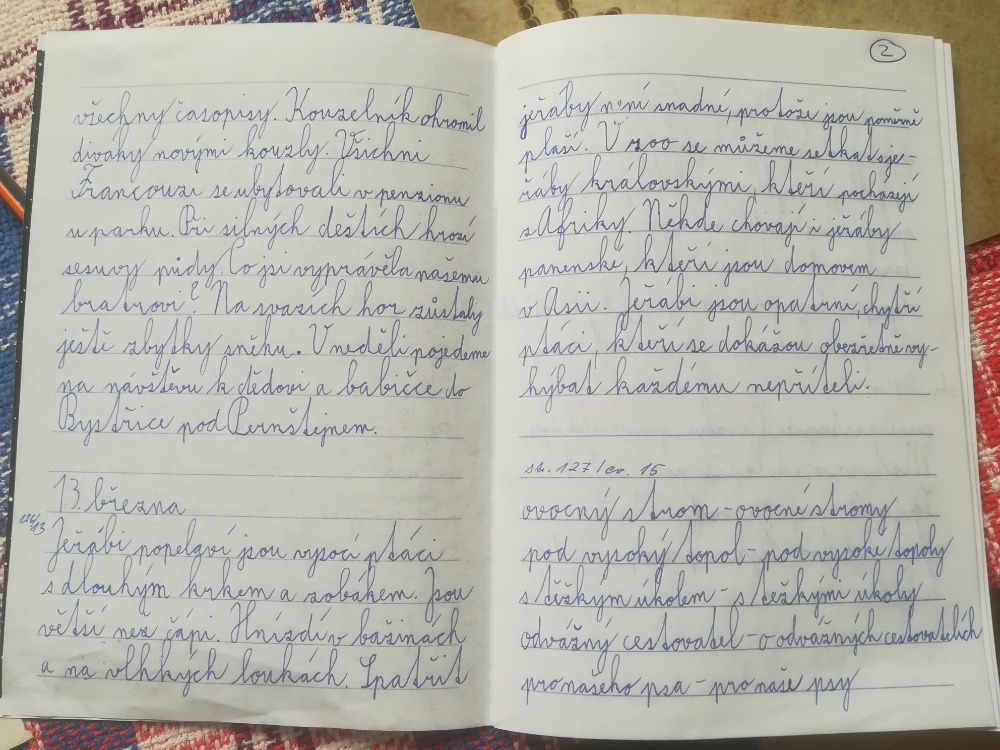 všechny časopisy. Kouzelník ohromil
diváky novými kouzly. Všichni
Francouzi se ubytovali v penzionu
u parku. Při silných deštích hrozí
sesuvy půdy. Co jsi vyprávěla našemu
bratrovi? Na svazích hor zůstaly
ještě zbytky sněhu. V neděli pojedeme
na návštěvu k dědovi a babičce do
Bystřice pod Pernštejnem.
13. března
126/13
Jeřábi popelaví jsou vysocí ptáci
s dlouhým krkem a zobákem. Jsou
větší než čápi. Hnízdí v bažinách
a na vlhkých loukách. Spatřit
2
jeřáby není snadné, protože jsou poměrně
plaší. V zoo se můžeme setkat s je-
řáby královskými, kteří pocházejí
z Afriky. Někde chovají i jeřáby
panenské, kteří jsou domovem
v Asii. Jeřábi jsou opatrní, chytří
ptáci, kteří se dokážou obezřetně vy-
hýbat každému nepříteli.
str. 127/cv. 15
ovocný strom - ovocné stromy
pod vysoký topol - pod vysoké topoly
s těžkým úkolem - s těžkými úkoly
odvážný cestovatel - o odvážných cestovatelích
pro našeho psa - pro naše psy